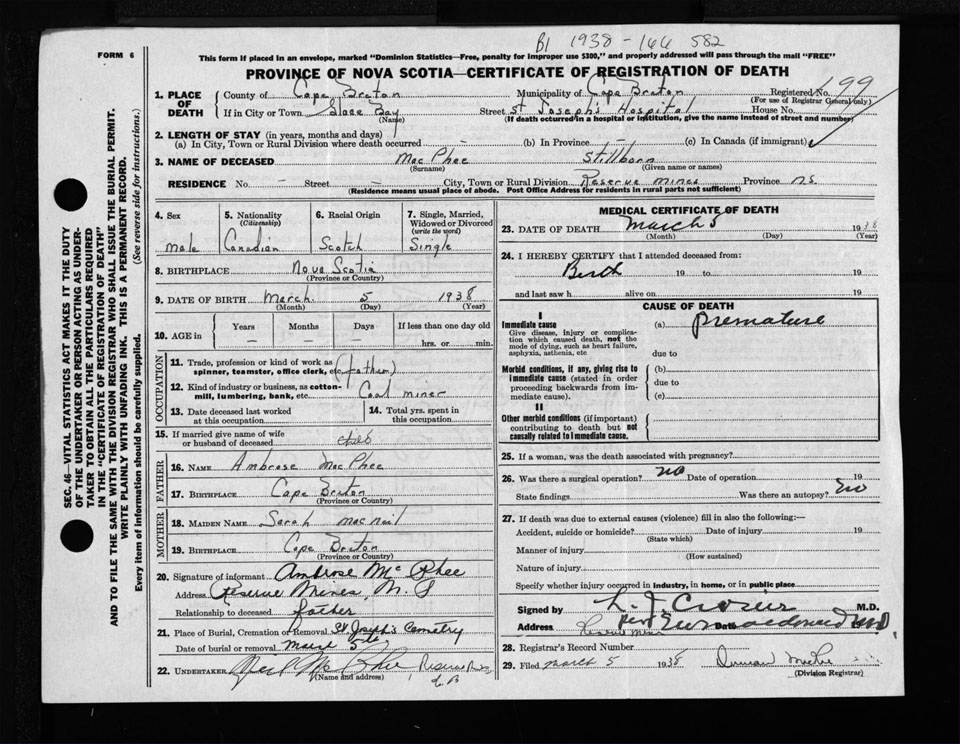 B1 1938 - 166 582
FORM 6
This form if placed in an envelope, marked "Dominion Statistics—Free, penalty for improper use $300," and properly addressed will pass through the mail "FREE"
PROVINCE OF NOVA SCOTIA—CERTIFICATE OF REGISTRATION OF DEATH
1. PLACE OF DEATH County of Cape Breton Municipality of Cape Breton Registered No. 199
(For use of Registrar General only)
If in City or Town Glace Bay (Name) Street St Josephs Hospital House No.
(If death occurred in a hospital or institution, give the name instead of street and number)
2. LENGTH OF STAY (in years, months and days)
(a) In City, Town or Rural Division where death occurred - (b) In Province - (c) In Canada (if immigrant)
3. NAME OF DECEASED Mac Phee Stillborn
(Surname) (Given name or names)
RESIDENCE No. - Street - City, Town or Rural Division Reserve mines Province N.S.
(Residence means usual place of abode. Post Office Address for residents in rural parts not sufficient)
SEC. 46—VITAL STATISTICS ACT MAKES IT THE DUTY
OF THE UNDERTAKER OR PERSON ACTING AS UNDER-
TAKER TO OBTAIN ALL THE PARTICULARS REQUIRED
IN THE "CERTIFICATE OF REGISTRATION OF DEATH"
AND TO FILE THE SAME WITH THE DIVISION REGISTRAR WHO SHALL ISSUE THE BURIAL PERMIT.
WRITE PLAINLY WITH UNFADING INK. THIS IS A PERMANENT RECORD.
Every item of information should be carefully supplied. (See reverse side for instructions.)
4. Sex 5. Nationality (Citizenship) 6. Racial Origin 7. Single, Married, Widowed or Divorced (write the word)
male Canadian Scotch Single
8. BIRTHPLACE Nova Scotia
(Province or Country)
9. DATE OF BIRTH March 5 1938
(Month) (Day) (Year)
10. AGE in Years Months Days If less than one day old
- - - hrs. or min.
OCCUPATION
11. Trade, profession or kind of work as spinner, teamster, office clerk, etc. (father)
12. Kind of industry or business, as cotton-mill, lumbering, bank, etc. Coal miner
13. Date deceased last worked at this occupation
14. Total yrs. spent in this occupation
15. If married give name of wife or husband of deceased child
FATHER
16. NAME Ambrose Mac Phee
17. BIRTHPLACE Cape Breton
(Province or Country)
MOTHER
18. MAIDEN NAME Sarah Mac neil
19. BIRTHPLACE Cape Breton
(Province or Country)
20. Signature of informant Ambrose Mc Phee
Address Reserve Mines, N. S
Relationship to deceased father
21. Place of Burial, Cremation or Removal St Joseph's Cemetry
Date of burial or removal
22. UNDERTAKER Neil Mc Phee Reserve Mines
(Name and address)
C.B
MEDICAL CERTIFICATE OF DEATH
23. DATE OF DEATH March 5 1938
(Month) (Day) (Year)
24. I HEREBY CERTIFY that I attended deceased from:
Birth 19 to 19
and last saw h alive on 19
CAUSE OF DEATH
I
Immediate cause (a) premature
Give disease, injury or complication which caused death, not the mode of dying, such as heart failure, asphyxia, asthenia, etc
due to
Morbid conditions, if any, giving rise to immediate cause (stated in order proceeding backwards from immediate cause).
(b)
due to
(c)
II
Other morbid conditions (if important) contributing to death but not causally related to immediate cause.
25. If a woman, was the death associated with pregnancy?
26. Was there a surgical operation? no Date of operation 19
State findings Was there an autopsy? no
27. If death was due to external causes (violence) fill in also the following:—
Accident, suicide or homicide? Date of injury 19
(State which)
Manner of injury
(How sustained)
Nature of injury
Specify whether injury occurred in industry, in home, or in public place
Signed by M.D.
Address Date
28. Registrar's Record Number
29. Filed march 5 1938
(Division Registrar)